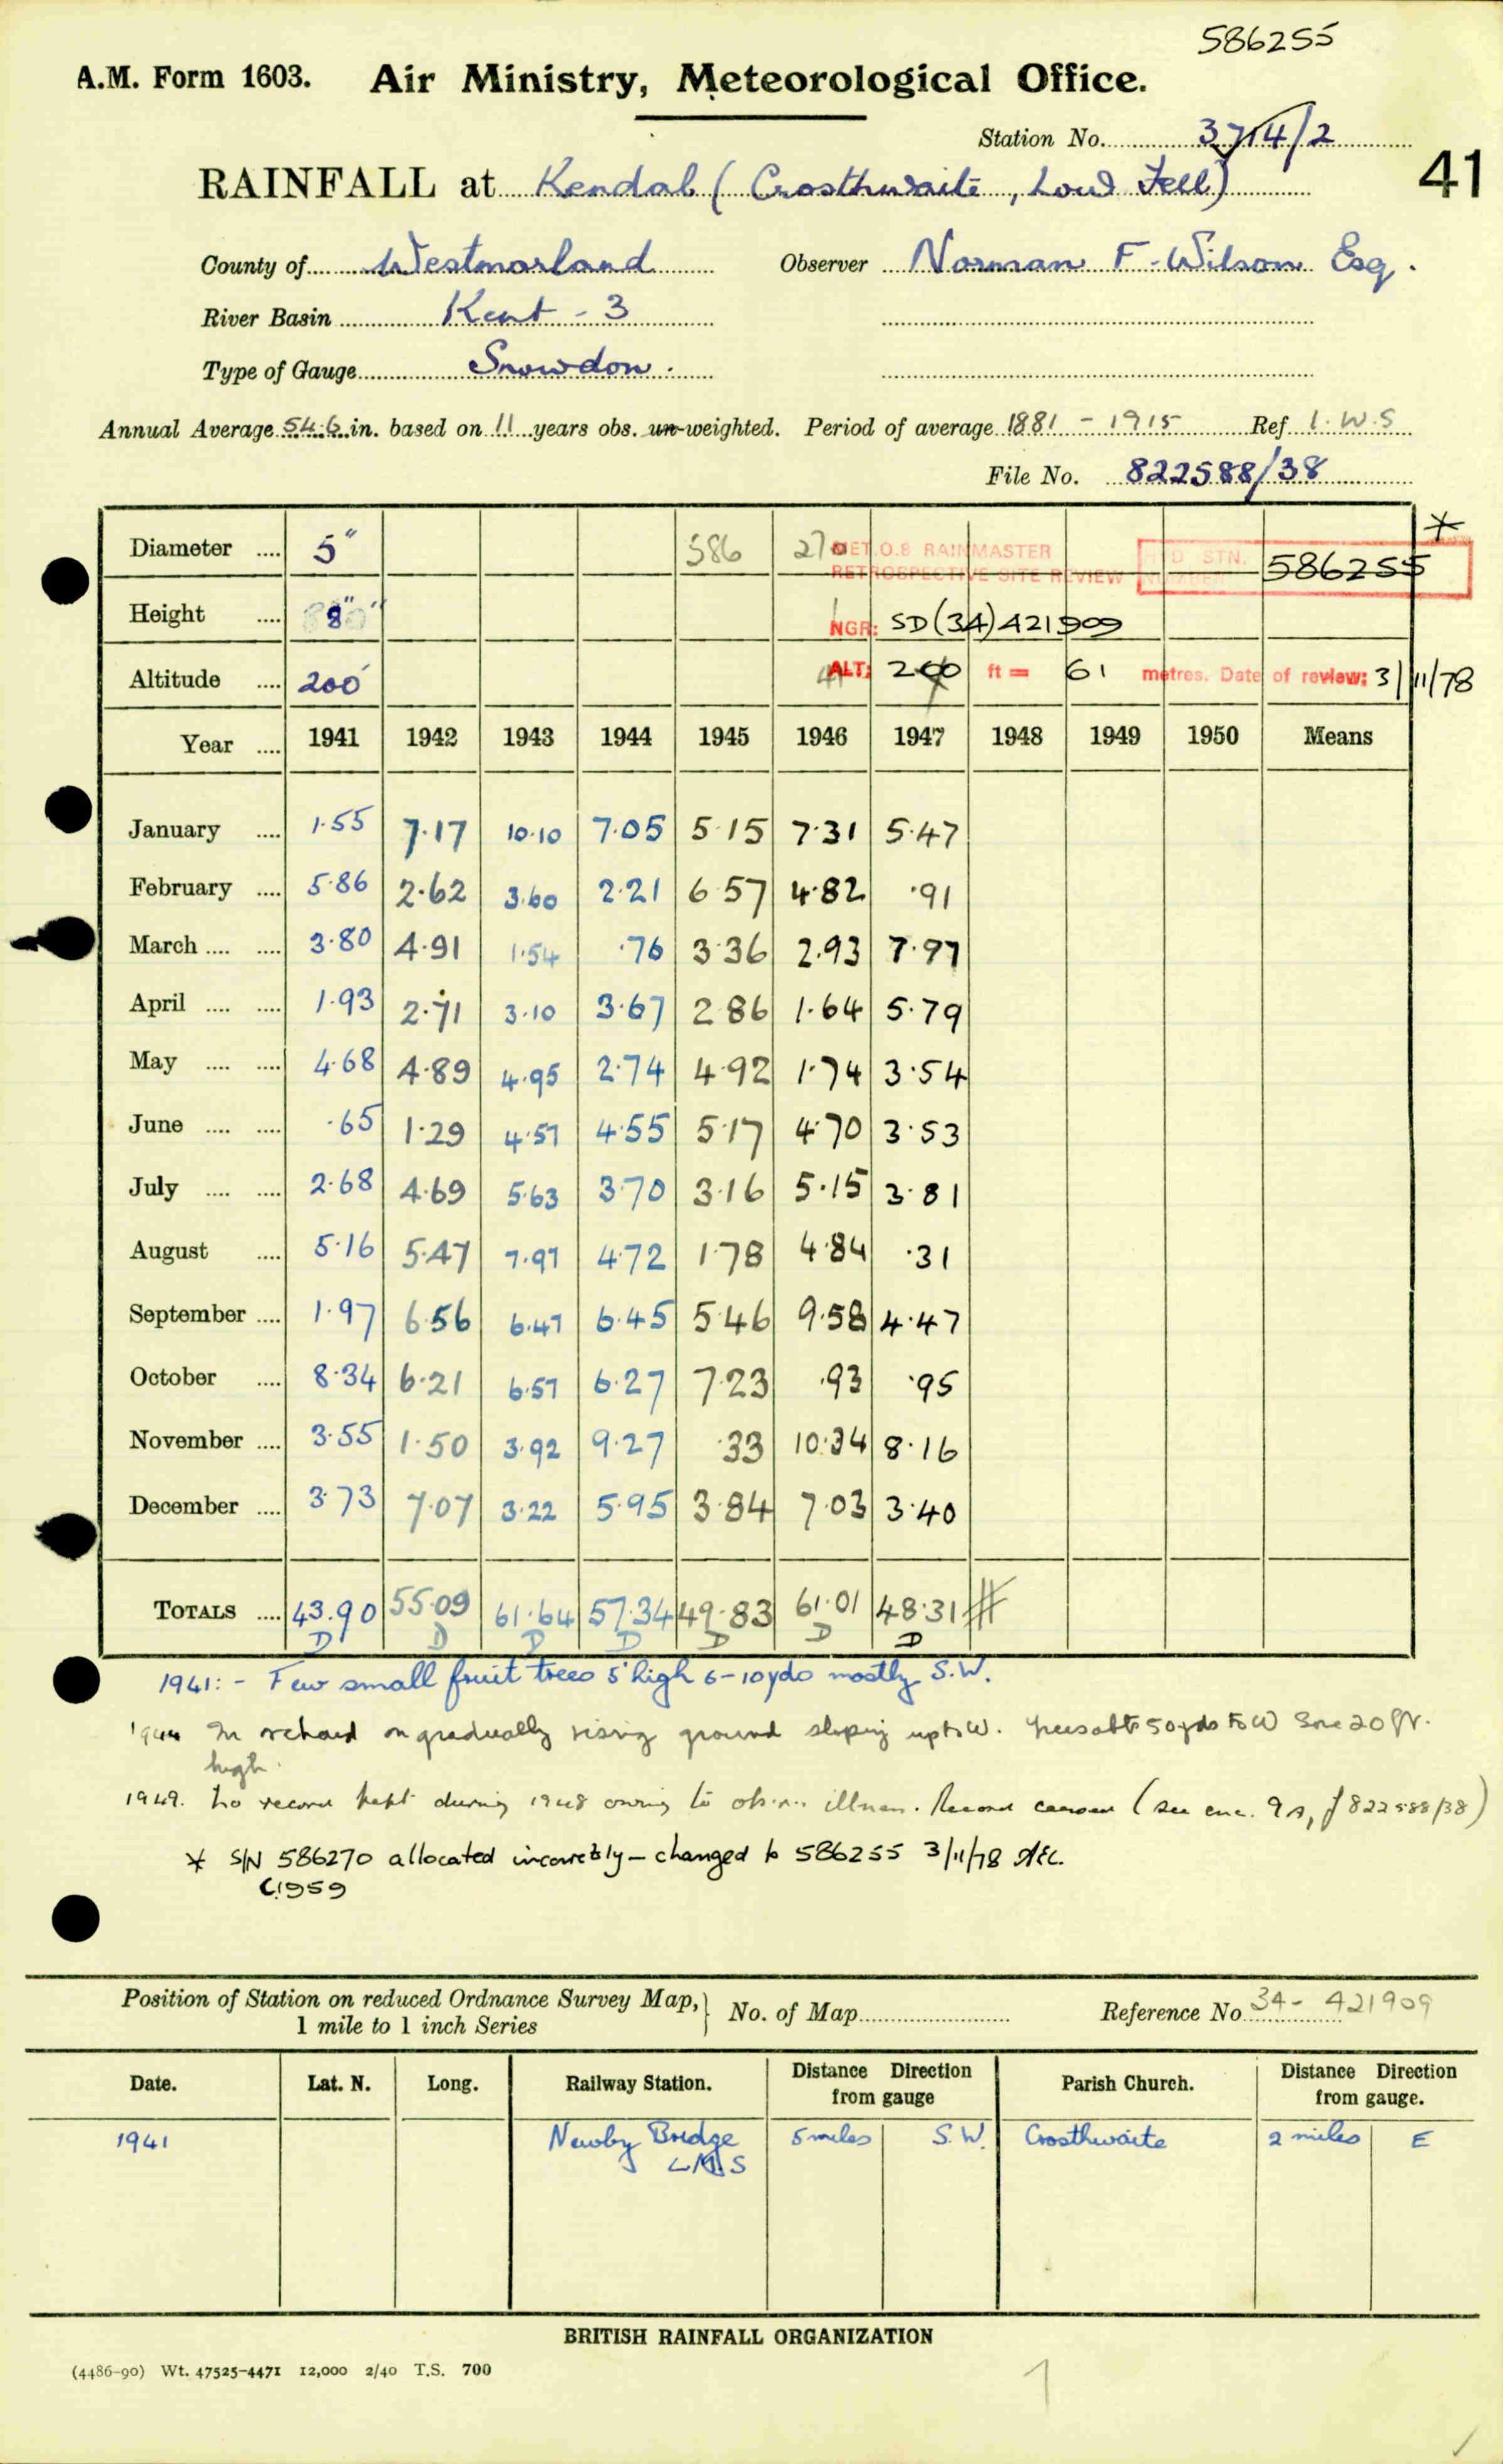 586255
A.M. Form 1603. Air Ministry, Meteorological Office.
Station No. 3714/2
41
RAINFALL at Kendal (Crosthwaite, Low Fell)
County of Westmorland Observer Norman F. Wilson Esq.
River Basin Kent - 3
Type of Gauge Snowdon.
Annual Average 54.6 in. based on 11 years obs. un-weighted. Period of average 1881 - 1915 Ref I.W.S
File No. 822588/38
*
Diameter .... 5" 586 270 MET.O.8 RAINMASTER HYD STN. 586255
RETROSPECTIVE SITE REVIEW NUMBER
Height .... 8" NGR: SD(34)421909
Altitude .... 200' ALT: 200 ft = 61 metres. Date of review: 3/11/78
Year .... 1941 1942 1943 1944 1945 1946 1947 1948 1949 1950 Means
January .... 1.55 7.17 10.10 7.05 5.15 7.31 5.47
February .... 5.86 2.62 3.60 2.21 6.57 4.82 .91
March .... .... 3.80 4.91 1.54 .76 3.36 2.93 7.97
April .... .... 1.93 2.71 3.10 3.67 2.86 1.64 5.79
May .... .... 4.68 4.89 4.95 2.74 4.92 1.74 3.54
June .... .... .65 1.29 4.57 4.55 5.17 4.70 3.53
July .... .... 2.68 4.69 5.63 3.70 3.16 5.15 3.81
August .... 5.16 5.47 7.97 4.72 1.78 4.84 .31
September .... 1.97 6.56 6.47 6.45 5.46 9.58 4.47
October .... 8.34 6.21 6.57 6.27 7.23 .93 .95
November .... 3.55 1.50 3.92 9.27 .33 10.34 8.16
December .... 3.73 7.07 3.22 5.95 3.84 7.03 3.40
TOTALS .... 43.90 55.09 61.64 57.34 49.83 61.01 48.31
D D D D D D D
1941:- Few small fruit trees 5' high 6-10 yds mostly S.W.
1944 In orchard on gradually rising ground sloping up to W. 50 yds to W 20 ft.
high.
1949. No record kept during 1948 owing to illness. Record (see enc. 9A, f 822588/38)
* S/N 586270 allocated incorrectly - changed to 586255 3/11/78
C.1959
Position of Station on reduced Ordnance Survey Map, No. of Map Reference No. 34 - 421909
1 mile to 1 inch Series
Date. Lat. N. Long. Railway Station. Distance Direction from gauge Parish Church. Distance Direction from gauge.
1941 Newby Bridge 5 miles S.W. Crosthwaite 2 miles E
LMS
BRITISH RAINFALL ORGANIZATION
(4486-90) Wt. 47525-4471 12,000 2/40 T.S. 700
1